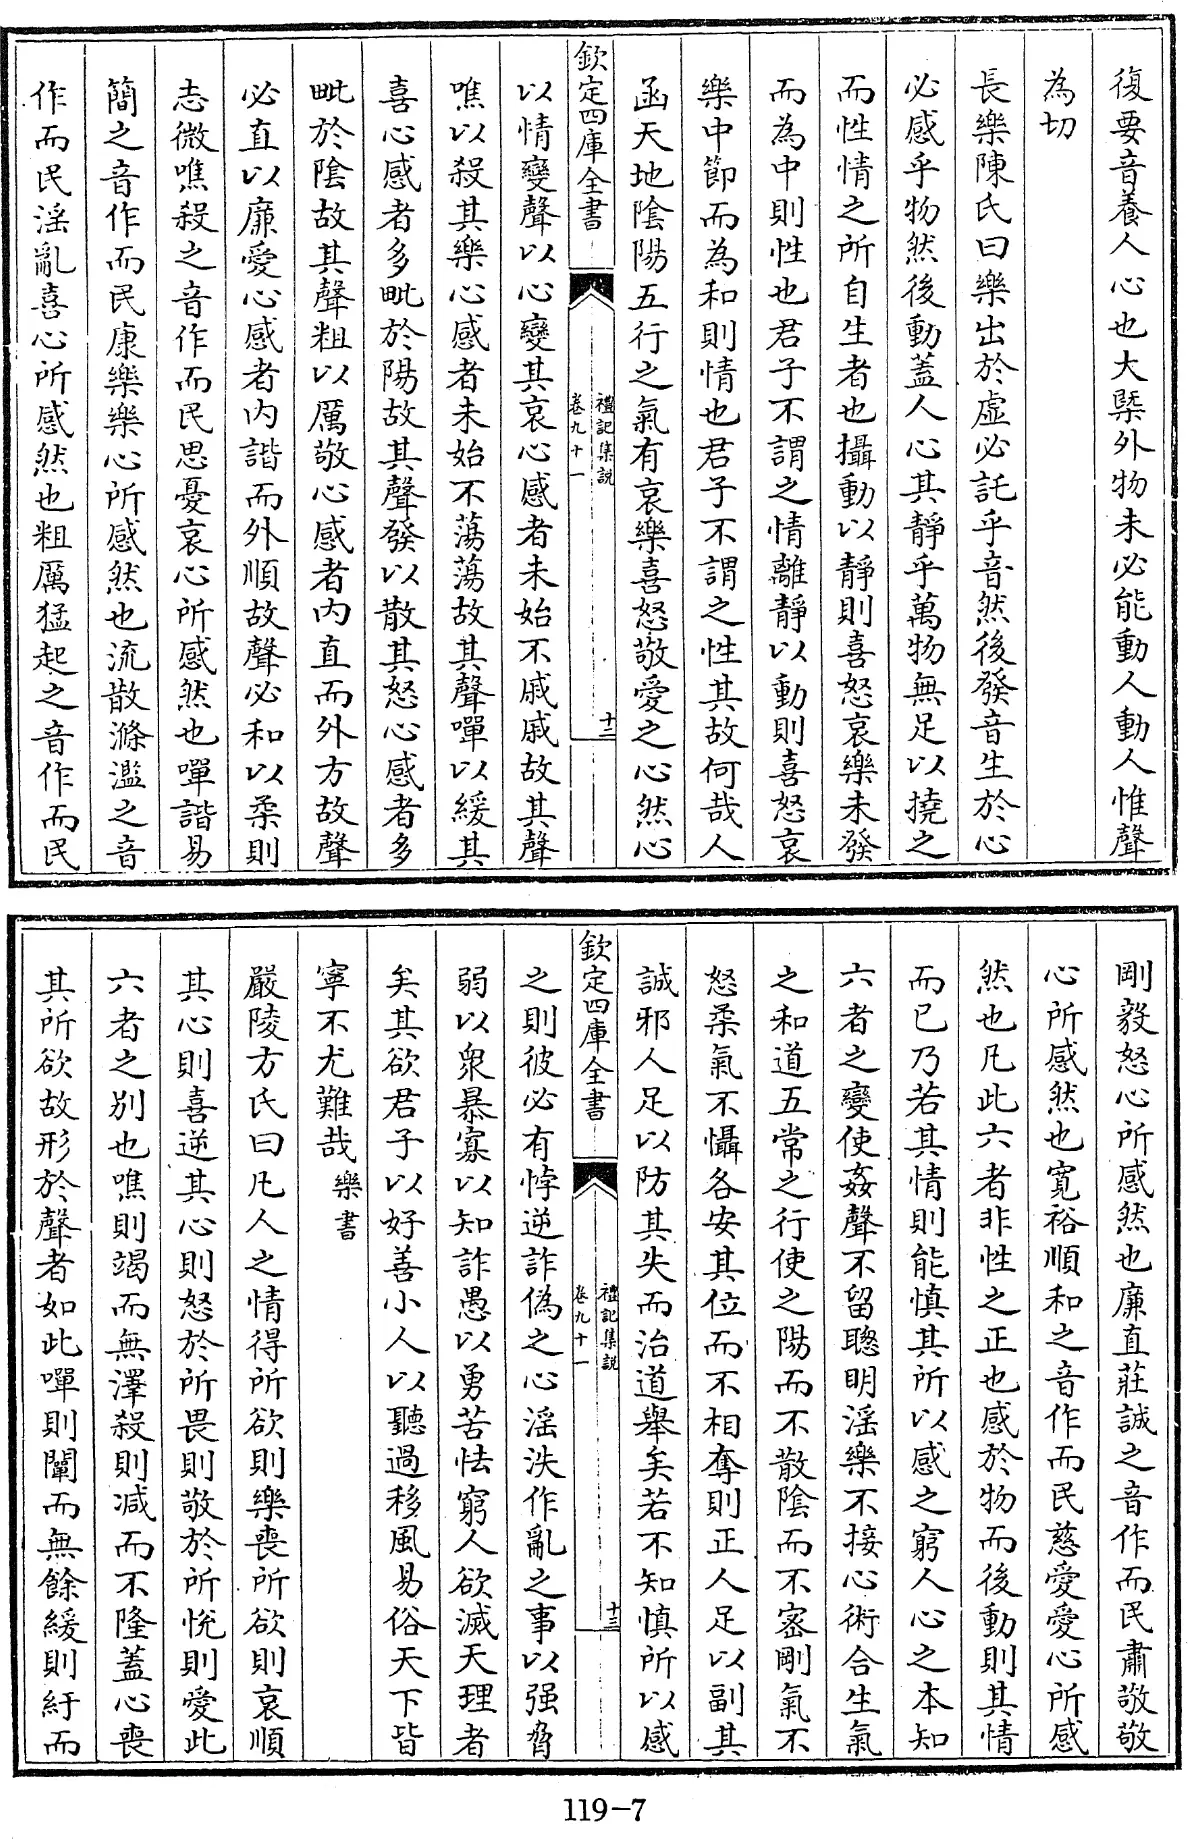 復要音養人心也大槩外物未必能動人動人惟聲
為切
長樂陳氏曰樂出於虛必託乎音然後發音生於心
必感乎物然後動蓋人心其靜乎萬物無足以撓之
而性情之所自生者也攝動以靜則喜怒哀樂未發
而為中則性也君子不謂之情離靜以動則喜怒哀
樂中節而為和則情也君子不謂之性其故何哉人
函天地陰陽五行之氣有哀樂喜怒敬愛之心然心
欽定四庫全書
禮記集說
卷九十一
十二
以情變聲以心變其哀心感者未始不戚戚故其聲
噍以殺其樂心感者未始不蕩蕩故其聲嘽以緩其
喜心感者多毗於陽故其聲發以散其怒心感者多
毗於陰故其聲粗以厲敬心感者內直而外方故聲
必直以廉愛心感者內諧而外順故聲必和以柔則
志微噍殺之音作而民思憂哀心所感然也嘽諧易
簡之音作而民康樂樂心所感然也流散滌濫之音
作而民淫亂喜心所感然也粗厲猛起之音作而民
剛毅怒心所感然也廉直莊誠之音作而民肅敬敬
心所感然也寬裕順和之音作而民慈愛愛心所感
然也凡此六者非性之正也感於物而後動則其情
而已乃若其情則能慎其所以感之窮人心之本知
六者之變使姦聲不留聰明淫樂不接心術合生氣
之和道五常之行使之陽而不散陰而不密剛氣不
怒柔氣不懾各安其位而不相奪則正人足以副其
誠邪人足以防其失而治道舉矣若不知慎所以感
欽定四庫全書
禮記集說
卷九十一
十三
之則彼必有悖逆詐偽之心淫泆作亂之事以强脅
弱以衆暴寡以知詐愚以勇苦怯窮人欲滅天理者
矣其欲君子以好善小人以聽過移風易俗天下皆
寧不尤難哉樂書
嚴陵方氏曰凡人之情得所欲則樂喪所欲則哀順
其心則喜逆其心則怒於所畏則敬於所悅則愛此
六者之別也噍則竭而無澤殺則減而不隆蓋心喪
其所欲故形於聲者如此嘽則闡而無餘緩則紆而
119-7